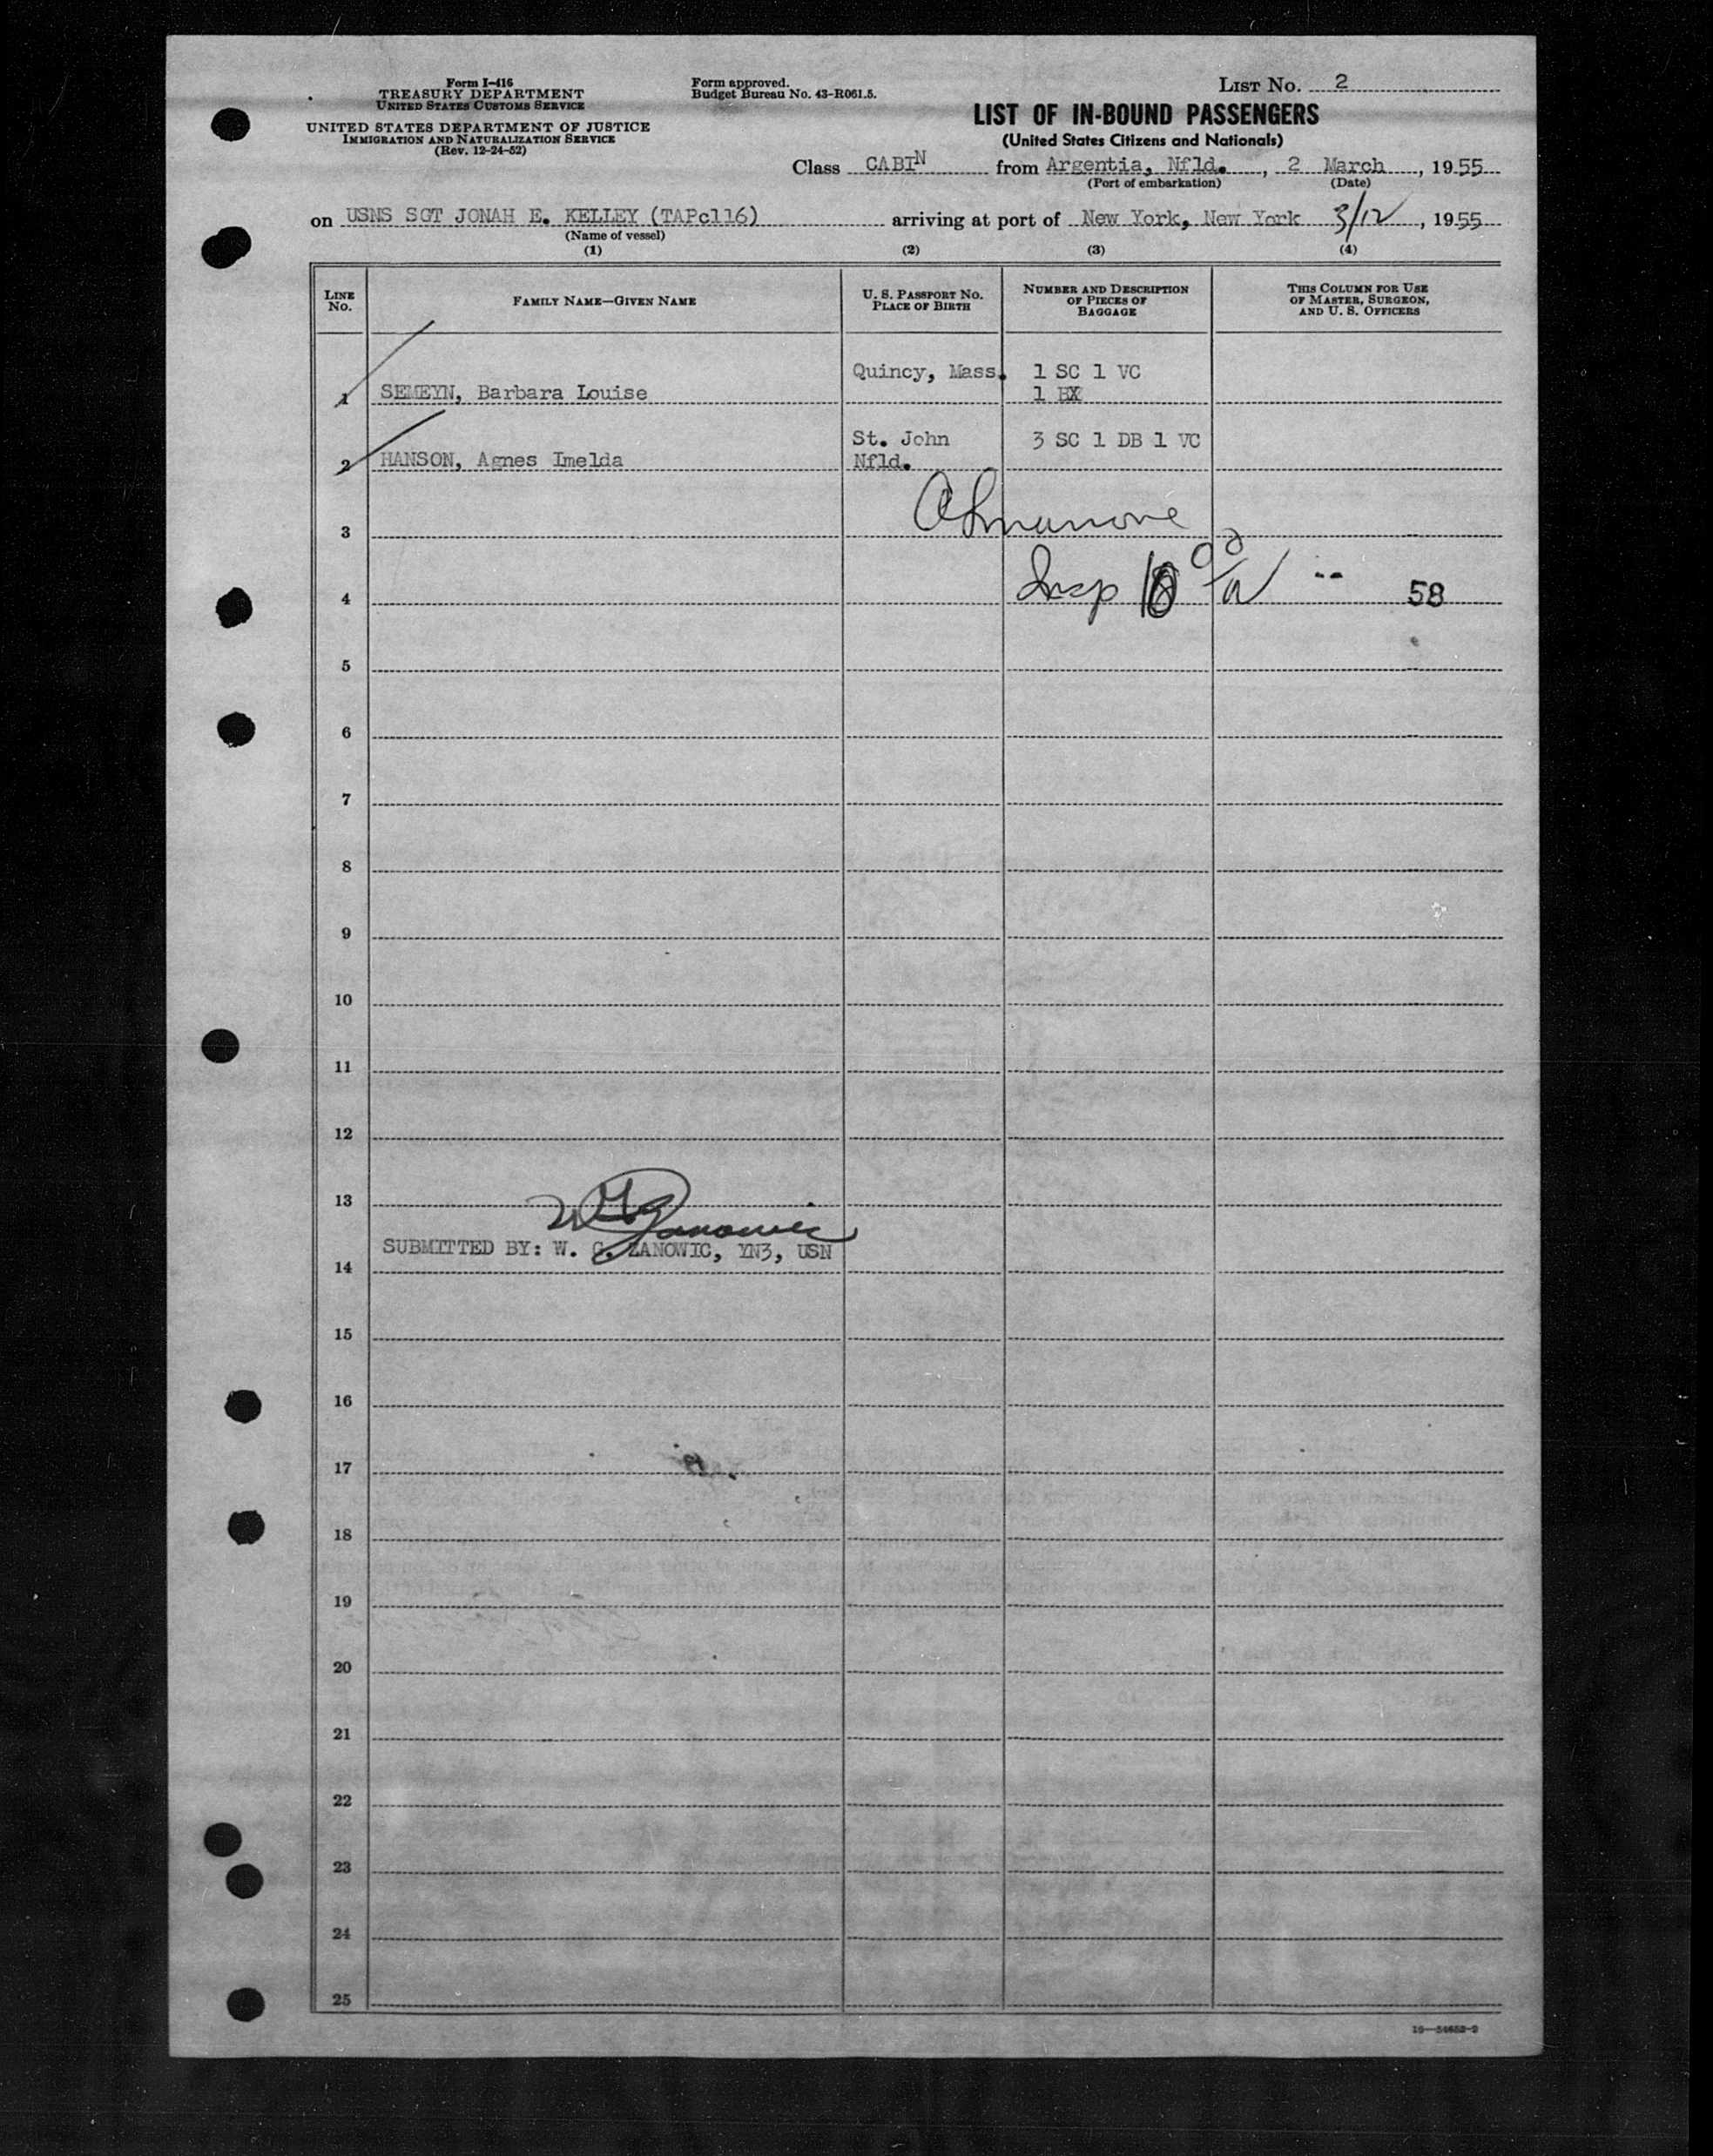 Form I-416
TREASURY DEPARTMENT
UNITED STATES CUSTOMS SERVICE
UNITED STATES DEPARTMENT OF JUSTICE
IMMIGRATION AND NATURALIZATION SERVICE
(Rev. 12-24-52)
Form approved.
Budget Bureau No. 43-R061.5.
LIST No. 2
LIST OF IN-BOUND PASSENGERS
(United States Citizens and Nationals)
Class CABIN from Argentia, Nfld., 2 March, 1955
(Port of embarkation) (Date)
on USNS SGT JONAH E. KELLEY (TAPc116) arriving at port of New York, New York 3/12, 1955
(Name of vessel)
(1) (2) (3) (4)
LINE No.
FAMILY NAME—GIVEN NAME
U. S. PASSPORT No.
PLACE OF BIRTH
NUMBER AND DESCRIPTION
OF PIECES OF
BAGGAGE
THIS COLUMN FOR USE
OF MASTER, SURGEON,
AND U. S. OFFICERS
Quincy, Mass. 1 SC 1 VC
1 SEMEYN, Barbara Louise 1 BX
St. John 3 SC 1 DB 1 VC
2 HANSON, Agnes Imelda Nfld.
3
4 Insp 58
5
6
7
8
9
10
11
12
13
SUBMITTED BY: W. G. ZANOWIC, YN3, USN
14
15
16
17
18
19
20
21
22
23
24
25